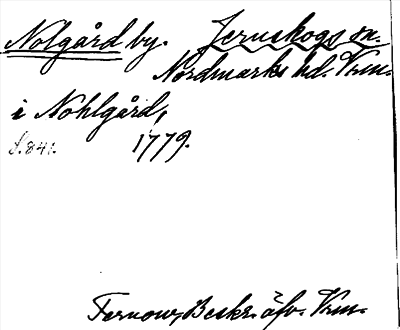 Nolgård by. Jernskogs sn.
Nordmarks hd. Vrm.
i Nohlgård,
s. 841. 1779.
Fernow, Beskr. öfv. Vrm.